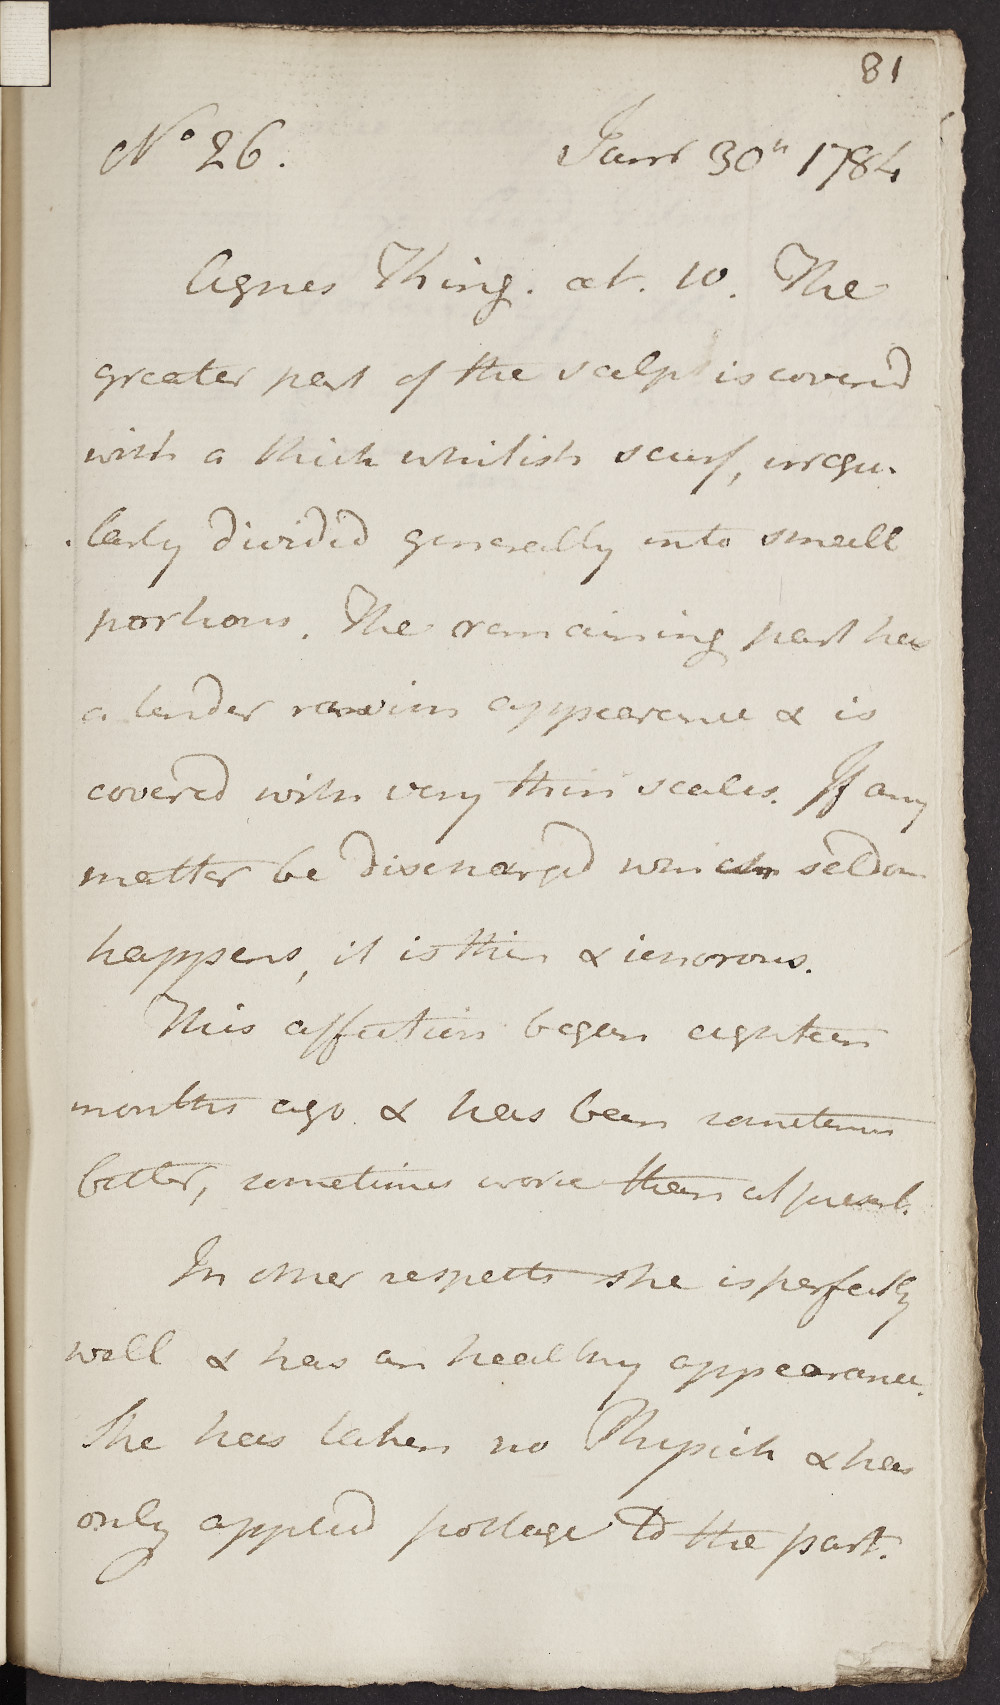 81
No 26. Janr 30th 1784
Agnes Thing. æt. 10. The
greater part of the scalp is covered
with a thick whitish scurf, irregu-
larly divided generally into small
portions. The remaining part has
a tender appearance & is
covered with very thin scales. If any
matter be discharged which seldom
happens, it is thin & ichorous.
This affection began eighteen
months ago & has been sometimes
better, sometimes worse than at present.
In other respects she is perfectly
well & has an healthy appearance.
She has taken no Physick & has
only applied pottage to the part.